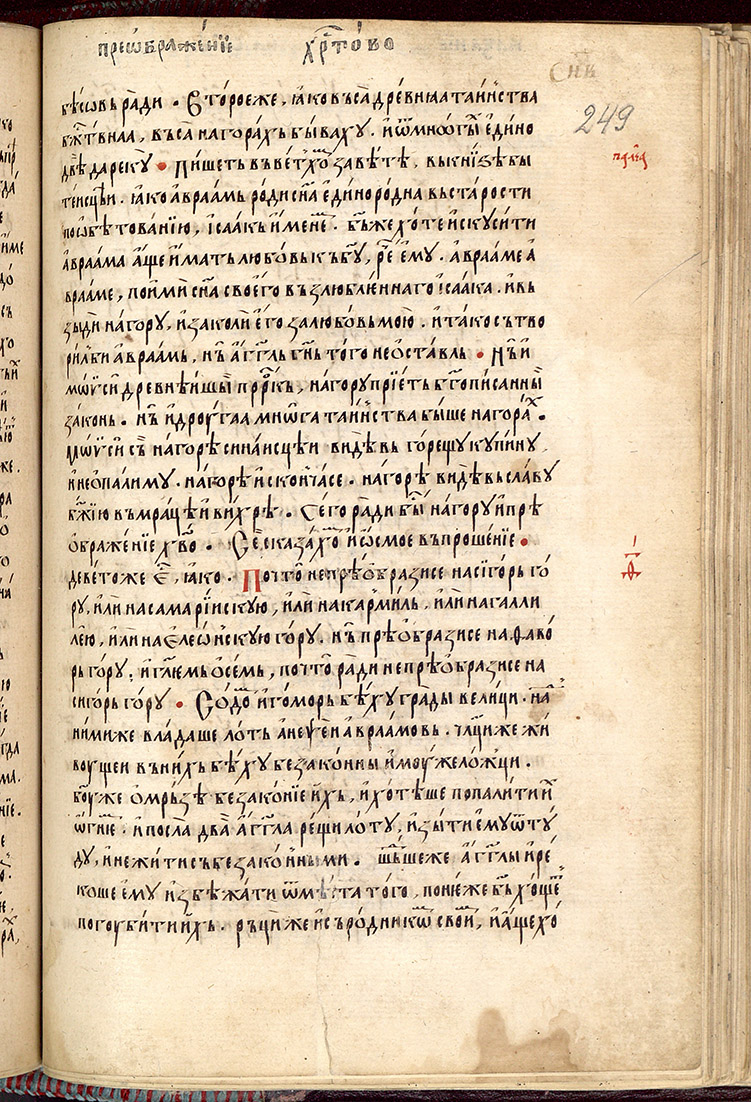 преѡбраже́нїе хр҇то́во
сн҃в
249
бѣсовь ради . Второеже , ꙗко въса дре́внꙗа таи́нства
бж҃твнаа , въса нагора́хь быва́ху . и҆ ѿмнѡгы́ е҆ди́но
двѣ̀ да реку̀ • пи́шеть въ ве́тхо҇ завѣ́тѣ , вь кни́зѣ бы
те́исцѣи . ꙗ҆ко а҆враамь роди̂ сн҃а е҆диноро́дна вь ста́рости
по ѡ҆бѣтова́нїю , і҆саакь и҆́мене҇м . бг҃ь же хотѐ и҆скуси́ти
а҆враама а҆́ще и҆́мать любо́вь къ бг҃у , ре҇ е҆мꙋ̀ . а҆враа́ме а҆
враа́ме , пои҆мѝ сн҃а своего̀ възлю́бленнаго і҆саа́ка . и҆ вь
зы́ди на го́ру , и҆ заколѝ е҆го̀ за любо́вь мою̀ . и҆ та́ко сътво
ри́лъ бѝ а҆враамь , нь̏ а҆́гг҃ль гн҃ь того̀ не ѡ҆ста́вль • Нь̏ и҆
мѡѵси̂ дре́внѣишы́и прⷪ҇ркъ , на го́ру прїе́ть бг҃описанны́и
зако́нь . нь̏ и҆ дрꙋ́гаа мнѡ́га таи́нства бы́ше на гора́х .
Мѡѵси̂ съ̏ на горѣ̀ сина́исцѣи видѣ̀ вь горе́щу купи́ну
и҆ неопали́му . на горѣ̀ и҆ сконча́се . на горѣ̀ видѣ̀ вь сла́ву
бж҃їю въ мра́цѣ и҆ ви́хрѣ . Сего̀ ра́ди бы҇ на го́ру и҆ прѣ
ѡ҆браже́нїе хв҃о . Се̏ сказа́хо҇м и҆ ѡ҆смое въпроше́нїе •
деве́тоже е҇ , ꙗ҆ко . Почто̀ не прѣѡбрази́се на сїго́рь го́
ру , и҆лѝ на самарі́искую , и҆лѝ на карми́ль , и҆лѝ на гали
ле́ю , и҆лѝ на Елеѡ́нскую го́ру . нь̏ прѣѡбрази́се на ѳаво́
рь го́ру . и҆ гл҃емь ѡ҆ се́мь , почто̀ ра́ди не прѣѡбрази́се на
сиго́рь го́ру • Содо҇м и҆ гомо́рь бѣ́ху гра́ды вели́ци . на҇
ни́миже влада́ше ло́ть а҆не́ѱеи а҆враа́мовь . чл҃ци же жи
ву́щеи въ ни́хь бѣ́ху беза́конны и҆ моужело́жци .
бг҃у же ѡ҆мрьзѐ беззако́нїе и҆́хь , и҆ хотѣ́ше попали́ти и҆́х
ѡ҆гне҇м . и҆ посла̀ два̀ а҆́гг҃ла рещи̂ ло́ту , и҆зы́ти е҆мꙋ̀ ѿту́
ду , и҆ не жи́ти съ беззако́нными . ше҇дше же а҆́гг҃лы и҆ ре́
коше е҆мꙋ̀ и҆збѣжа́ти ѿмѣ́ста того̀ , поне́же бг҃ь хо́ще҇т
погоуби́ти и҆́хь . рьци́ же и҆ съро́дникѡ҇м свои҇м , и҆ а҆́ще хо́